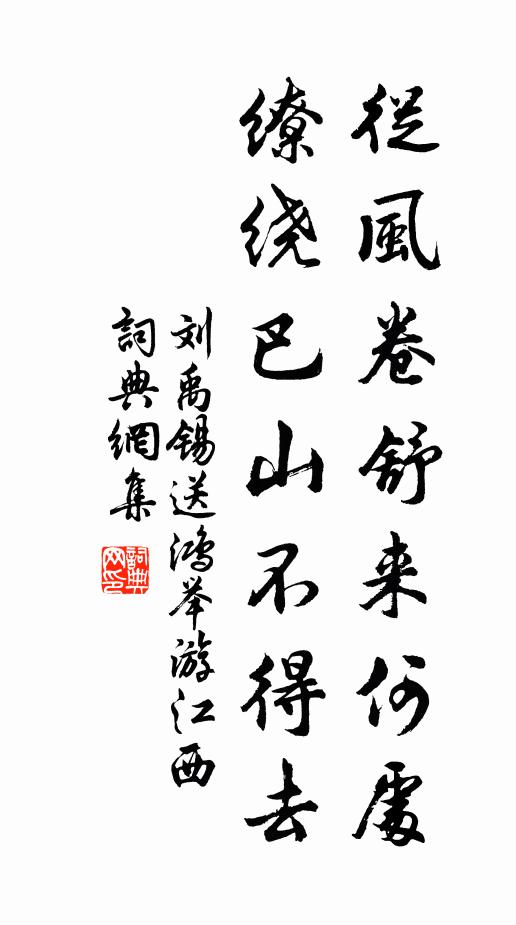 從風卷舒来何處
缭绕巴山不得去
刘禹锡送鸿举游江西
詞典網集
詞典网印